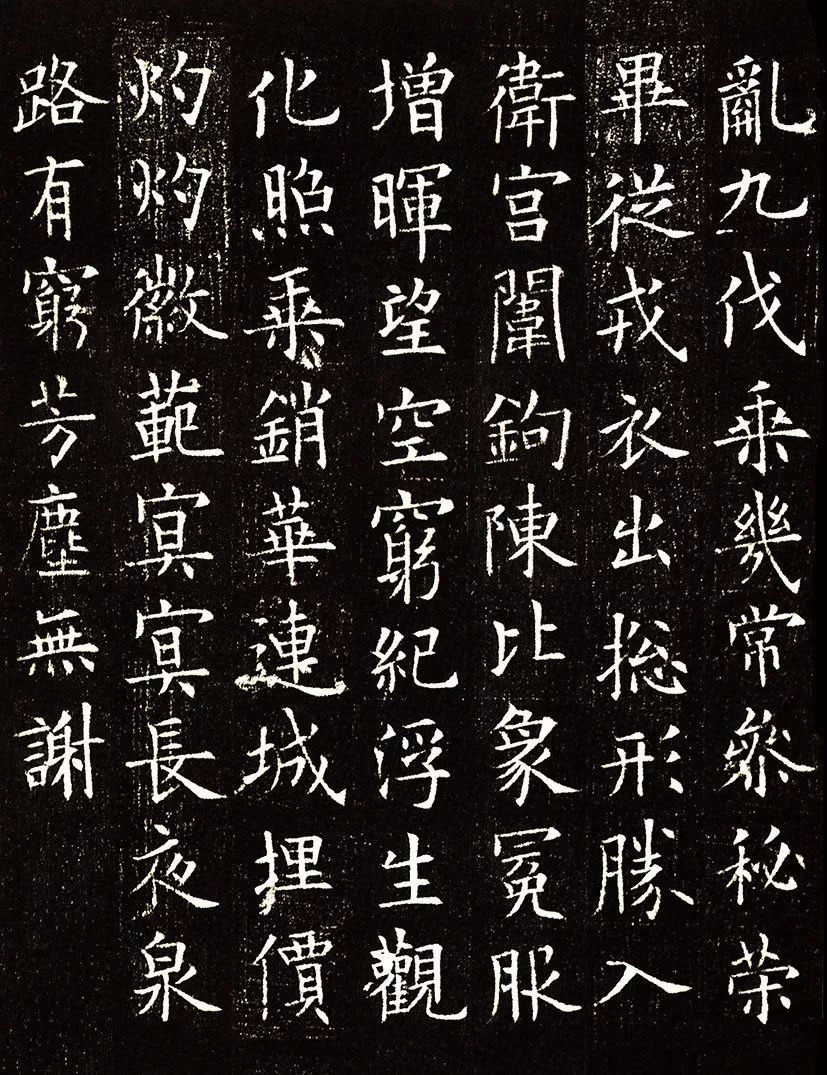 亂九伐乘幾常叅秘荣
畢從戎衣出揔形勝入
衛宫闈鉤陳比象冕服
增暉望空窮紀浮生觀
化照乘銷華連城埋價
灼灼徽範寘寘長夜泉
路有窮芳塵無謝